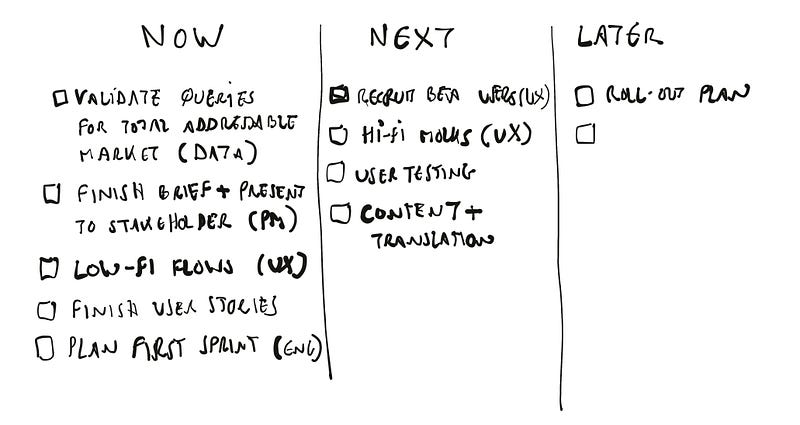 NOW
VALIDATE QUERIES
FOR TOTAL ADDRESSABLE
MARKET (DATA)
FINISH BRIEF + PRESENT
TO STAKEHOLDER (PM)
LOW-FI FLOWS (UX)
FINISH USER STORIES
PLAN FIRST SPRINT (ENG)
NEXT
RECRUIT BETA USERS (UX)
Hi-fi MOCKS (UX)
USER TESTING
CONTENT +
TRANSLATION
LATER
ROLL-OUT PLAN